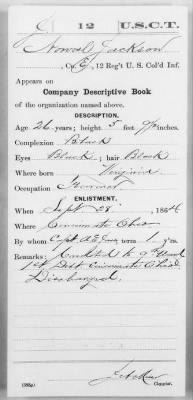 J 12 U.S.C.T.
Jackson
, Co. E, 12 Reg't U. S. Col'd Inf.
Appears on
Company Descriptive Book
of the organization named above.
DESCRIPTION.
Age 26 years; height 5 feet inches.
Complexion Black
Eyes Black; hair Black
Where born Virginia
Occupation
ENLISTMENT.
When Sept 28, 1864
Where Cincinnati Ohio
By whom Capt term 1 y'rs.
Remarks: Credited to 9" Ward
1st Dist Cincinnati Ohio
Discharged.
(383g) Copyist.